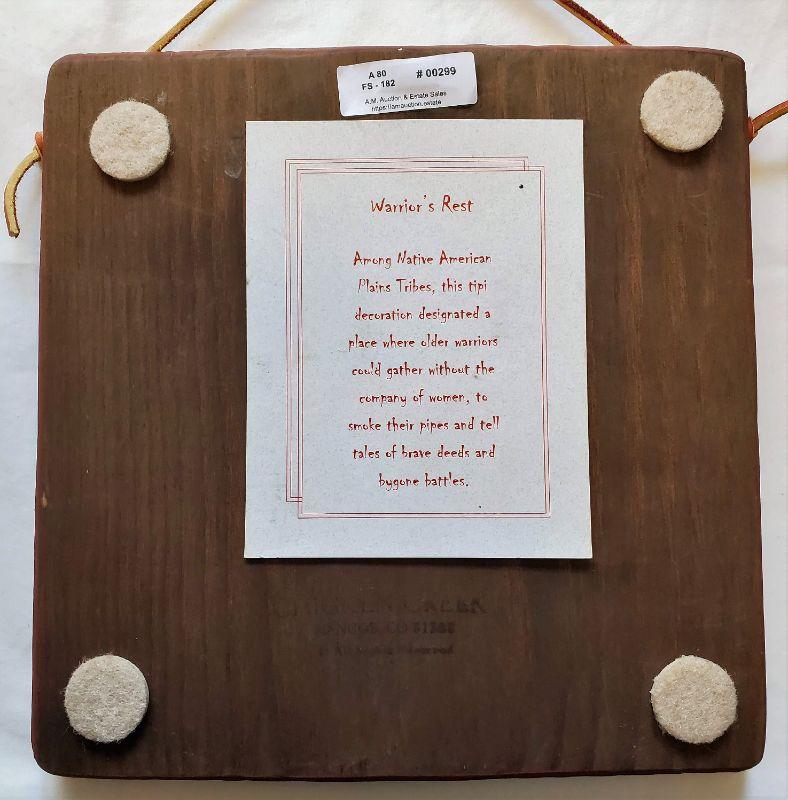 A 80 # 00299
FS - 182
A.M. Auction & Estate Sales
https://amauction.estate
Warrior's Rest
Among Native American
Plains Tribes, this tipi
decoration designated a
place where older warriors
could gather without the
company of women, to
smoke their pipes and tell
tales of brave deeds and
bygone battles.
CREEK
MANCOS, CO 81328
© All Rights Reserved